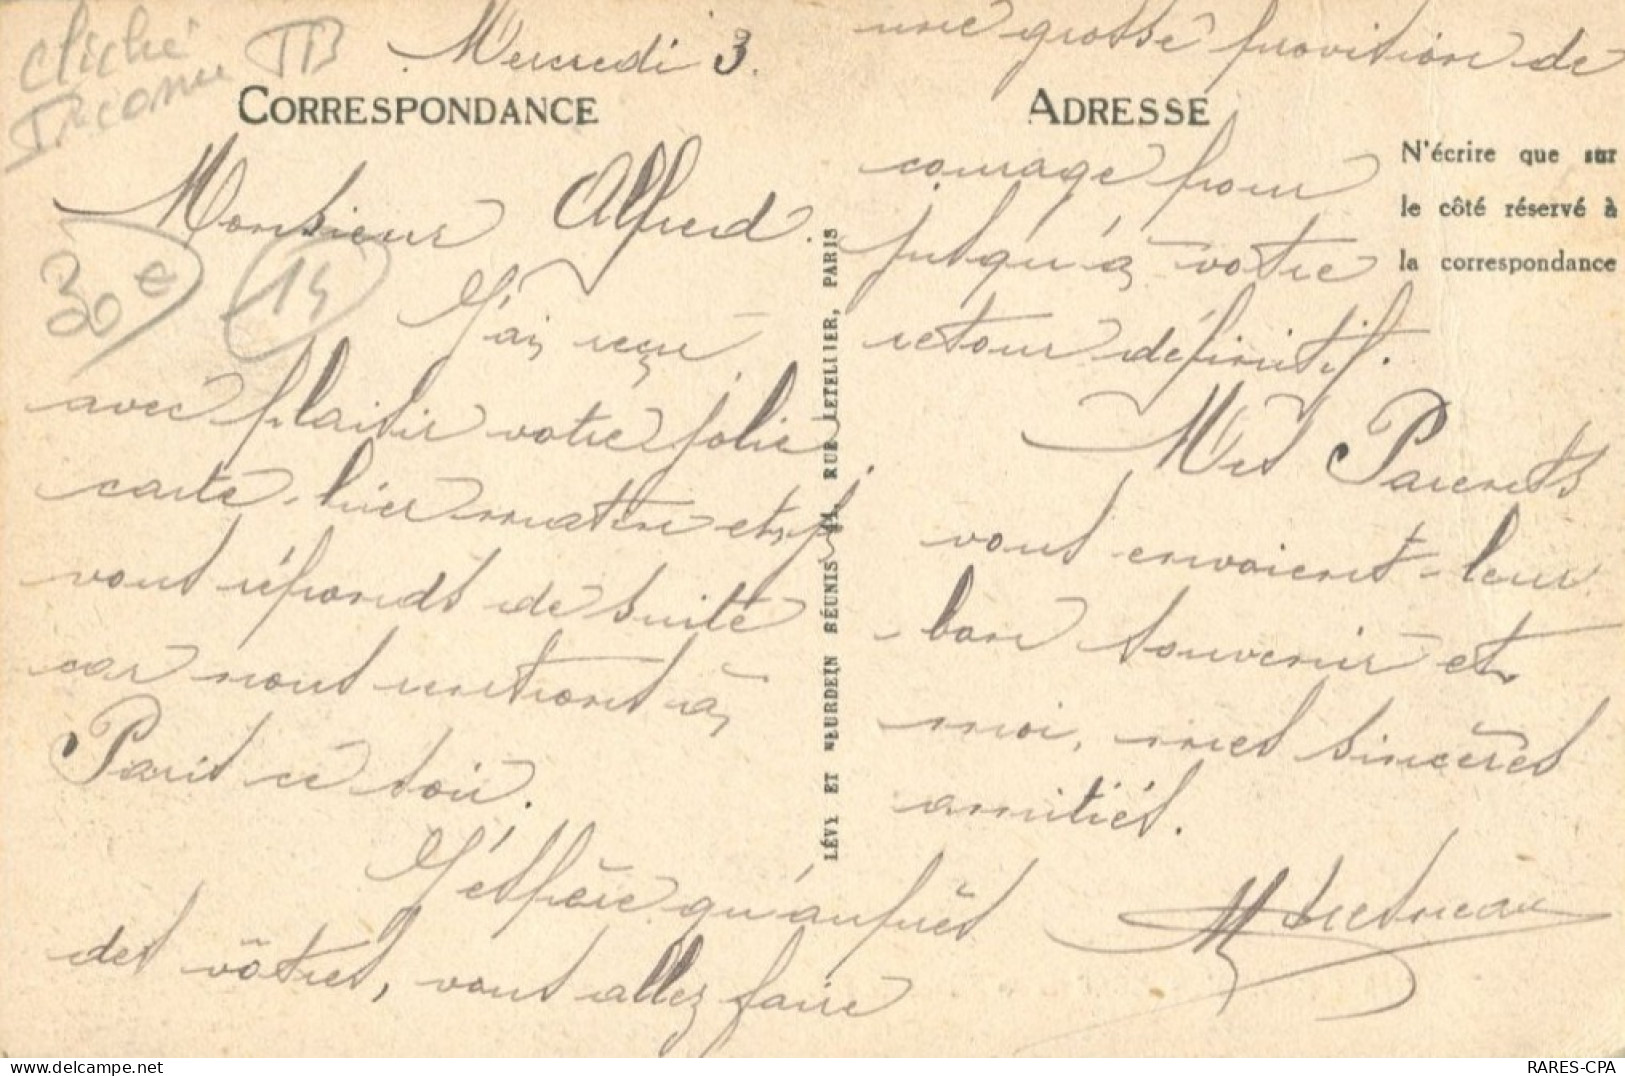 cliché
TB
Mercredi 3.
CORRESPONDANCE
Monsieur Alfred.
30 €
14
J'ai reçu
avec plaisir votre jolie
carte hier matin et je
vous réponds de suite
car nous rentrons à
Paris ce soir.
J'espère qu'auprès
des vôtres, vous allez faire
une grosse provision de
ADRESSE
courage pour
jusqu'à votre
retour définitif.
Mes Parents
vous envoient leur
bon souvenir et
moi, mes sincères
amitiés.
N'écrire que sur
le côté réservé à
la correspondance
LÉVY ET NEURDEIN RÉUNIS 44, RUE LETELLIER, PARIS
RARES-CPA